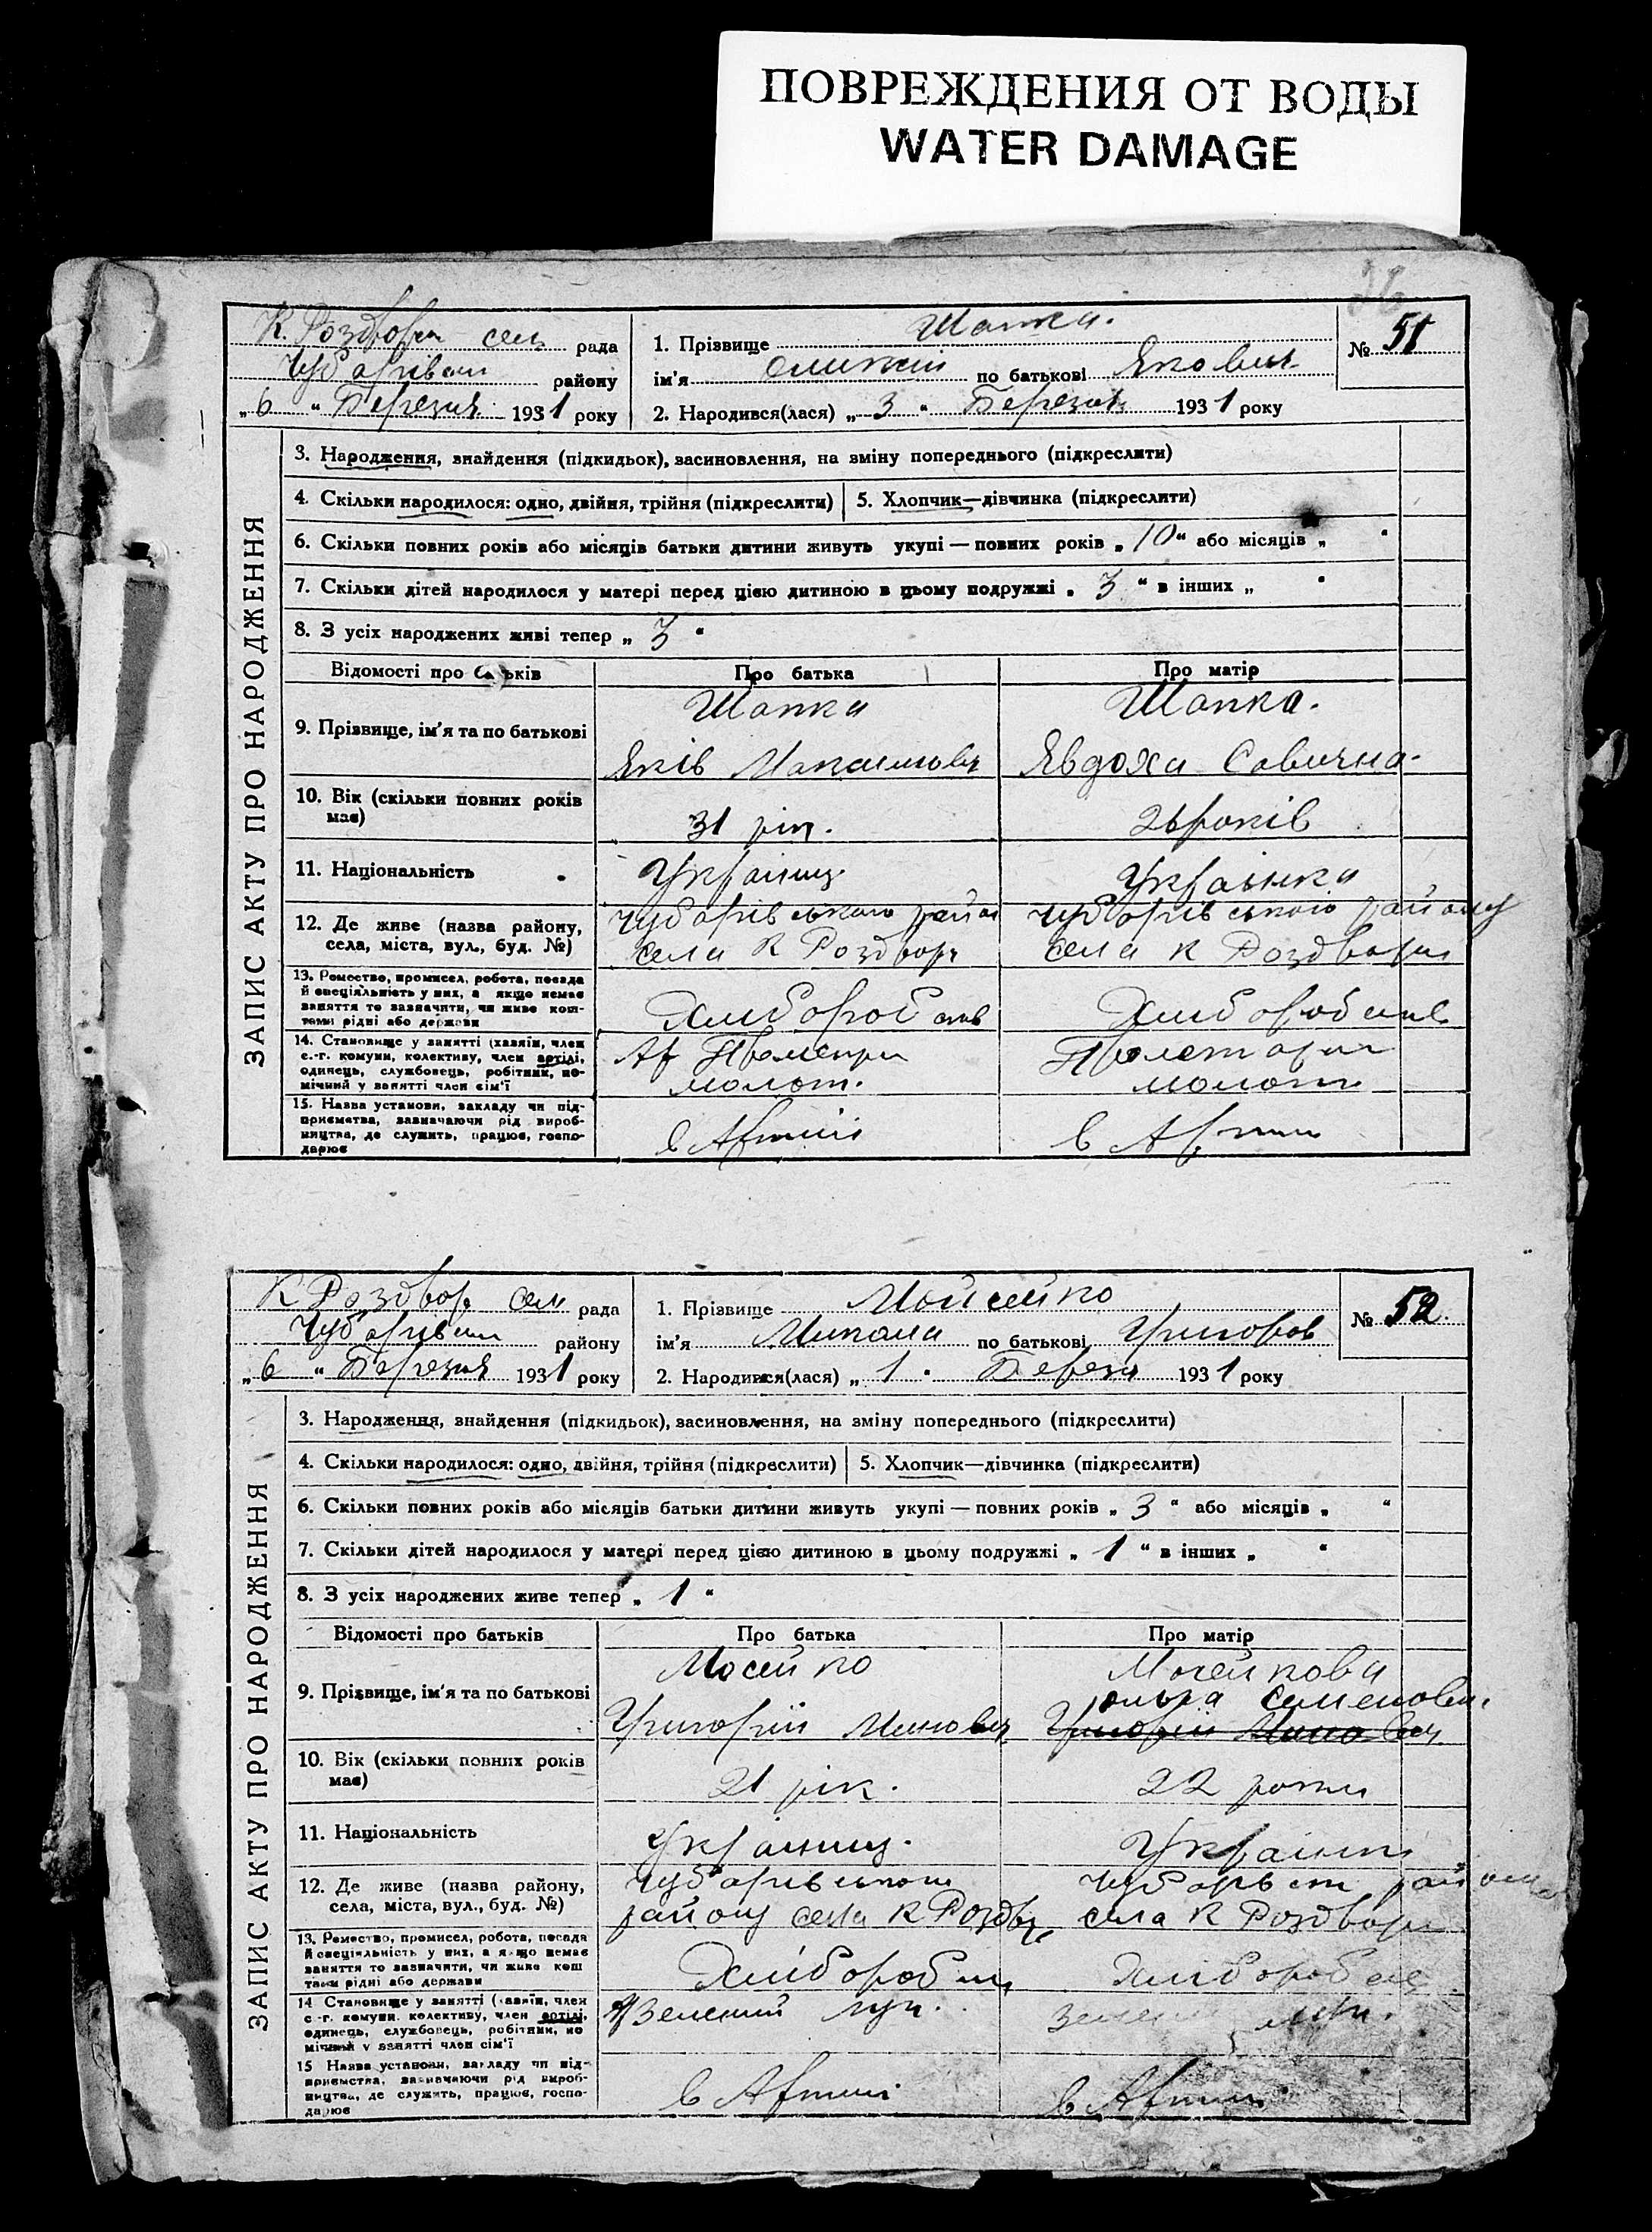 ПОВРЕЖДЕНИЯ ОТ ВОДЫ
WATER DAMAGE
26
К. Роздори сель рада
Чубарівськ району
„6“ Березня 1931 року
1. Прізвище Шапка.
№ 51
ім'я по батькові Якович
2. Народився(лася) „3“ Березня 1931 року
ЗАПИС АКТУ ПРО НАРОДЖЕННЯ
3. Народження, знайдення (підкидьок), засиновлення, на зміну попереднього (підкреслити)
4. Скільки народилося: одно, двійня, трійня (підкреслити) 5. Хлопчик—дівчинка (підкреслити)
6. Скільки повних років або місяців батьки дитини живуть укупі — повних років „10“ або місяців „ “
7. Скільки дітей народилося у матері перед цією дитиною в цьому подружжі „3“ в інших „ “
8. З усіх народжених живі тепер „3“
Відомості про батьків Про батька Про матір
9. Прізвище, ім'я та по батькові
Шапка Шапка.
Яків Максимович Явдоха Савична.
10. Вік (скільки повних років має)
31 рік. 26 років
11. Національність Українец Українка
12. Де живе (назва району, села, міста, вул., буд. №)
Чубарівського район Чубарівського району
села К Роздори села К Роздори
13. Ремество, промисел, робота, посада й спеціяльність у них, а якщо немає заняття то зазначити, чи живе коштами рідні або держави
Хлібороб Хлібороб
14. Становище у занятті (хазяїн, член с.-г. комуни, колективу, член артілі, одинець, службовець, робітник, помічний у занятті член сім'ї
молот. молот
15. Назва установи, закладу чи підприємства, зазначаючи рід виробництва, де служить, працює, господарює
в Артилі в Артил
К Роздор сел рада
Чубарівськ району
„6“ Березня 1931 року
1. Прізвище Мойсейко
№ 52.
ім'я Микола по батькові Григоров
2. Народився(лася) „1“ Березн 1931 року
ЗАПИС АКТУ ПРО НАРОДЖЕННЯ
3. Народження, знайдення (підкидьок), засиновлення, на зміну попереднього (підкреслити)
4. Скільки народилося: одно, двійня, трійня (підкреслити) 5. Хлопчик—дівчинка (підкреслити)
6. Скільки повних років або місяців батьки дитини живуть укупі — повних років „3“ або місяців „ “
7. Скільки дітей народилося у матері перед цією дитиною в цьому подружжі „1“ в інших „ “
8. З усіх народжених живе тепер „1“
Відомості про батьків Про батька Про матір
9. Прізвище, ім'я та по батькові
Мосейко Мосейкова
Семеновн.
Григорій Минович Григорій Минович
10. Вік (скільки повних років має)
21 рік. 22 роки
11. Національність Українец. Українк
12. Де живе (назва району, села, міста, вул., буд. №)
Чубарівського Чубарівськ району
району села К Роздор села К Роздори
13. Ремество, промисел, робота, посада й спеціяльність у них, а якщо немає заняття то зазначити, чи живе коштами рідні або держави
Хлібороб Хлібороб
14 Становище у занятті (хазяїн, член с.-г. комуни, колективу, член артілі, одинець, службовець, робітник, помічний у занятті член сім'ї
Зелений луч.
15 Назва установи, закладу чи підприємства, зазначаючи рід виробництва, де служить, працює, господарює
в Артилі в Артилі